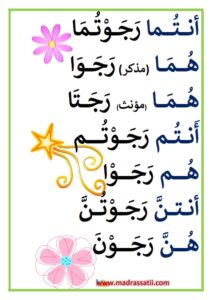 أنتُـما رَجَـوْتُمَا
هُـمَـا (مذكر) رَجَـوَا
هُـمَـا (مؤنث) رَجَـتَا
أَنـتُم رَجَـوْتُـم
هُـم رَجَـوْا
أنتـنَّ رَجَـوْتُـنَّ
هُـنَّ رَجَـوْنَ
www.madrassatii.com